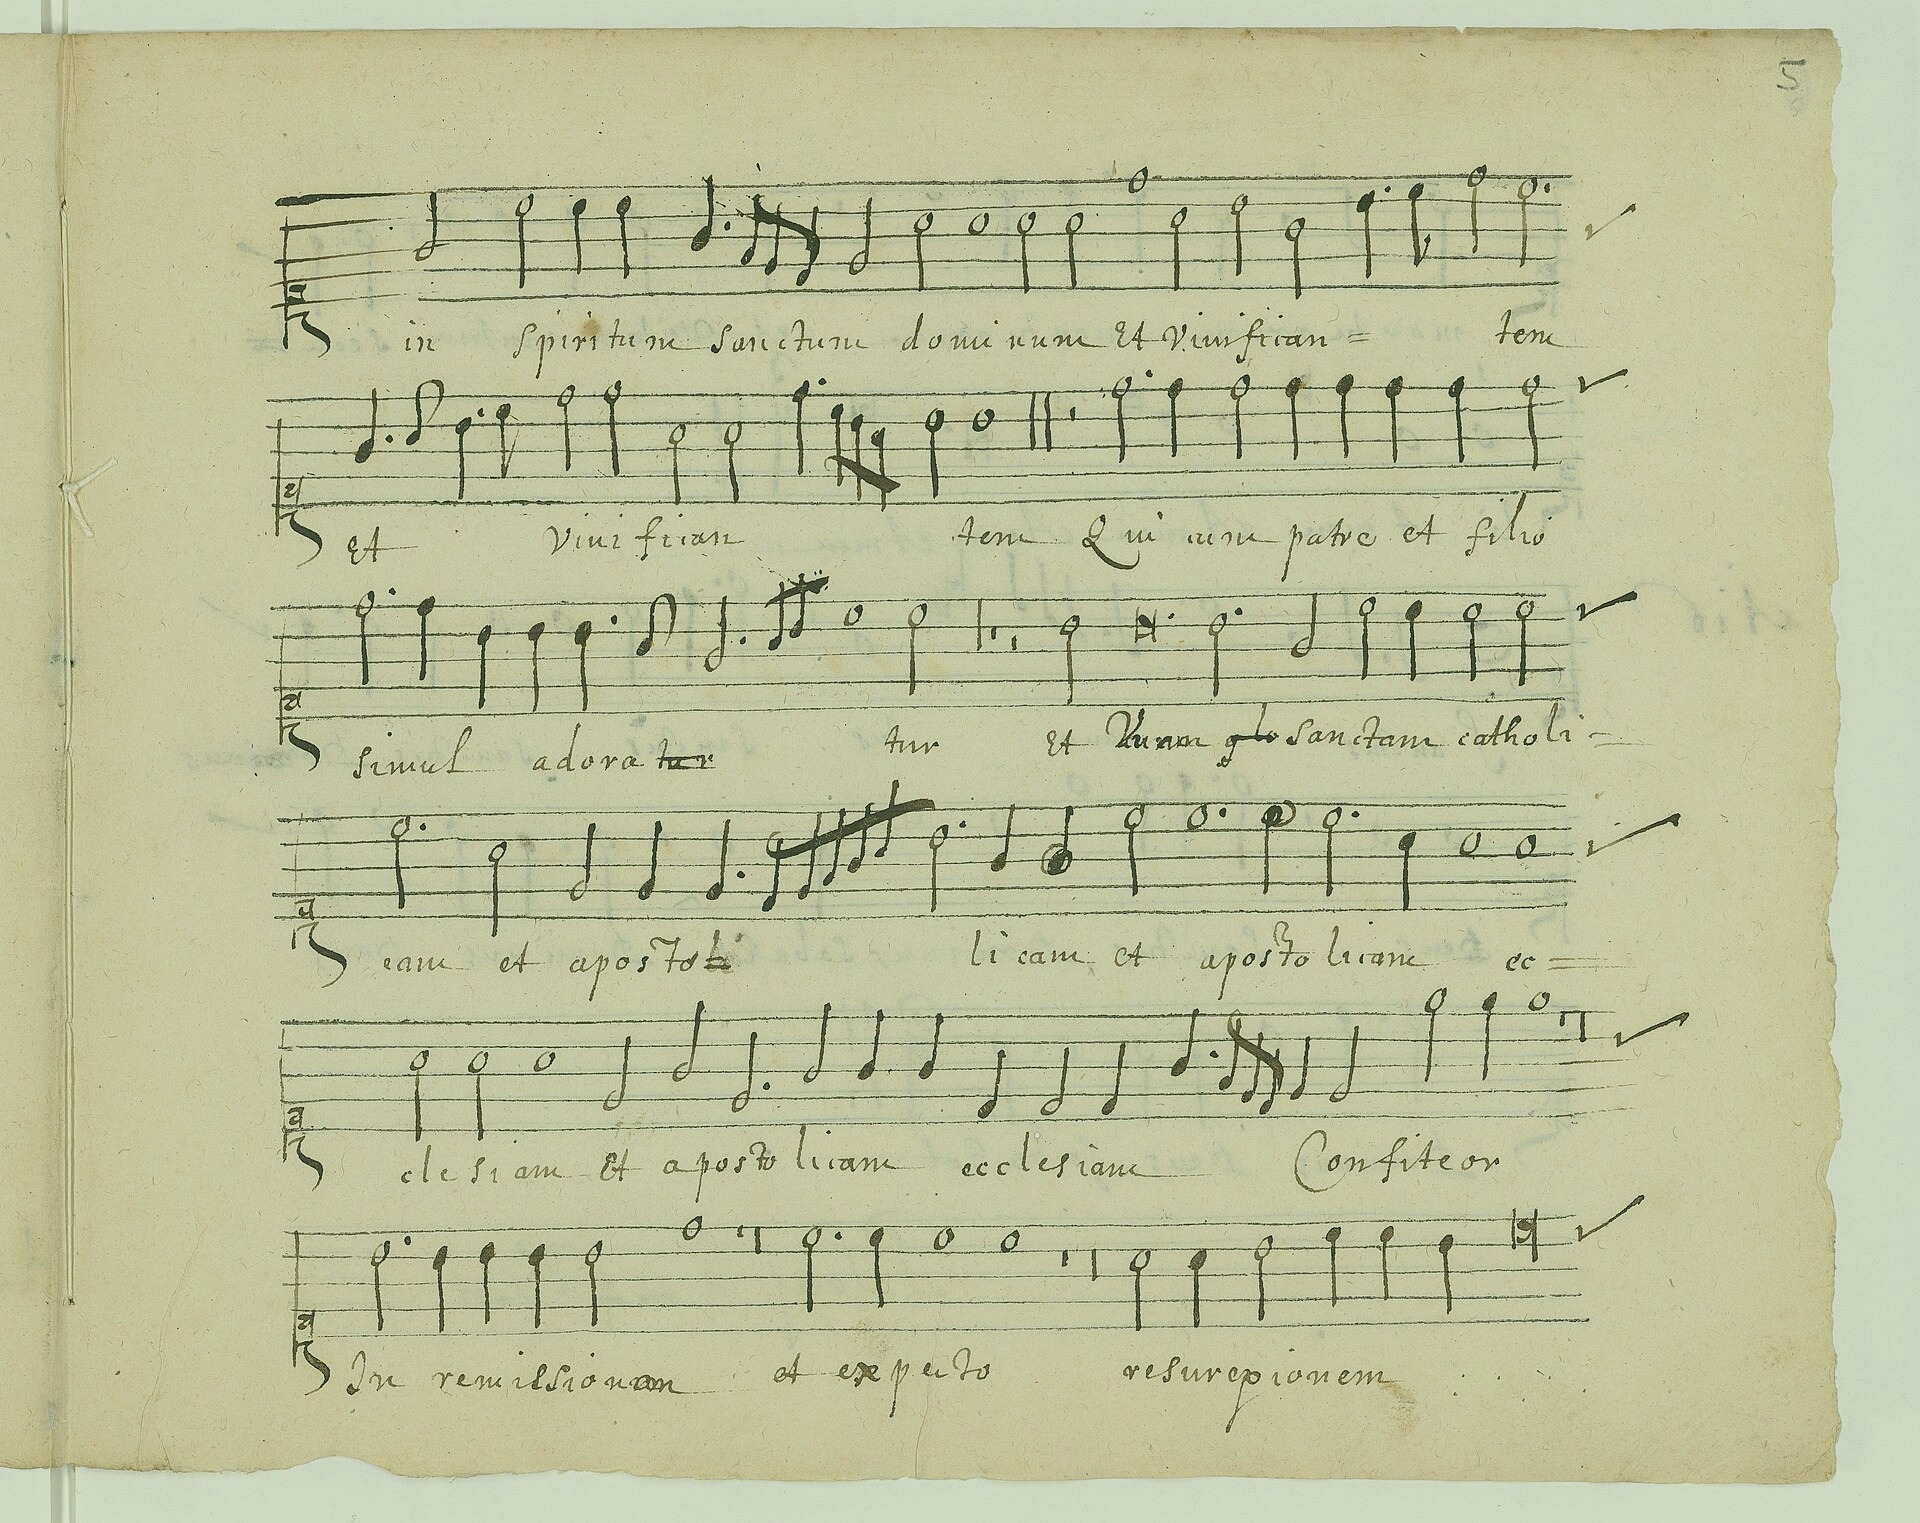 5
in spiritum sanctum dominum Et vivifican= tem
Et vivifican tem Qui cum patre et filio
simul adora tur tur et Unam glo sanctam catholi=
cam et apostoli licam et apostolicam ec=
clesiam Et apostolicam ecclesiam Confiteor
In remissionem et expecto resurexionem